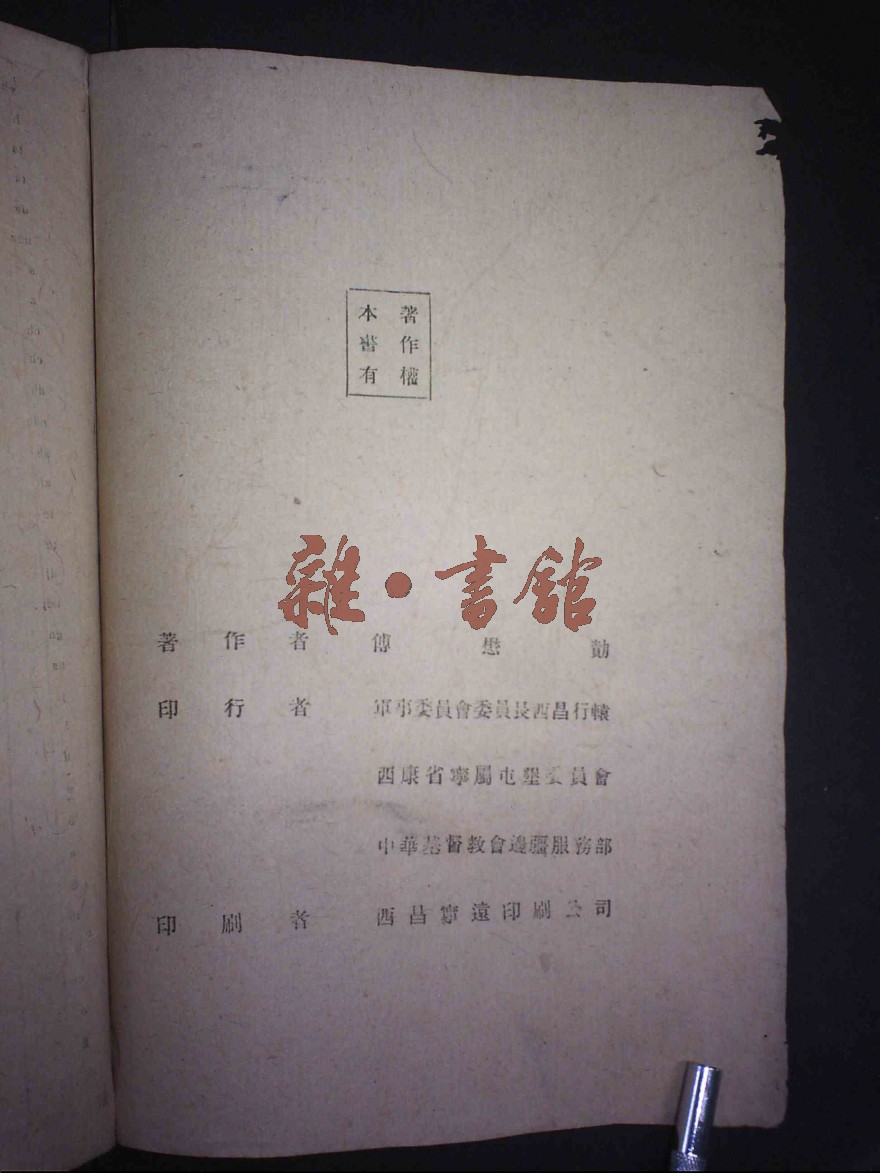 本書有
著作權
雜·書館
著作者 傅懋勣
印行者 軍事委員會委員長西昌行轅
西康省寧屬屯墾委員會
中華基督教會邊疆服務部
印刷者 西昌寧遠印刷公司